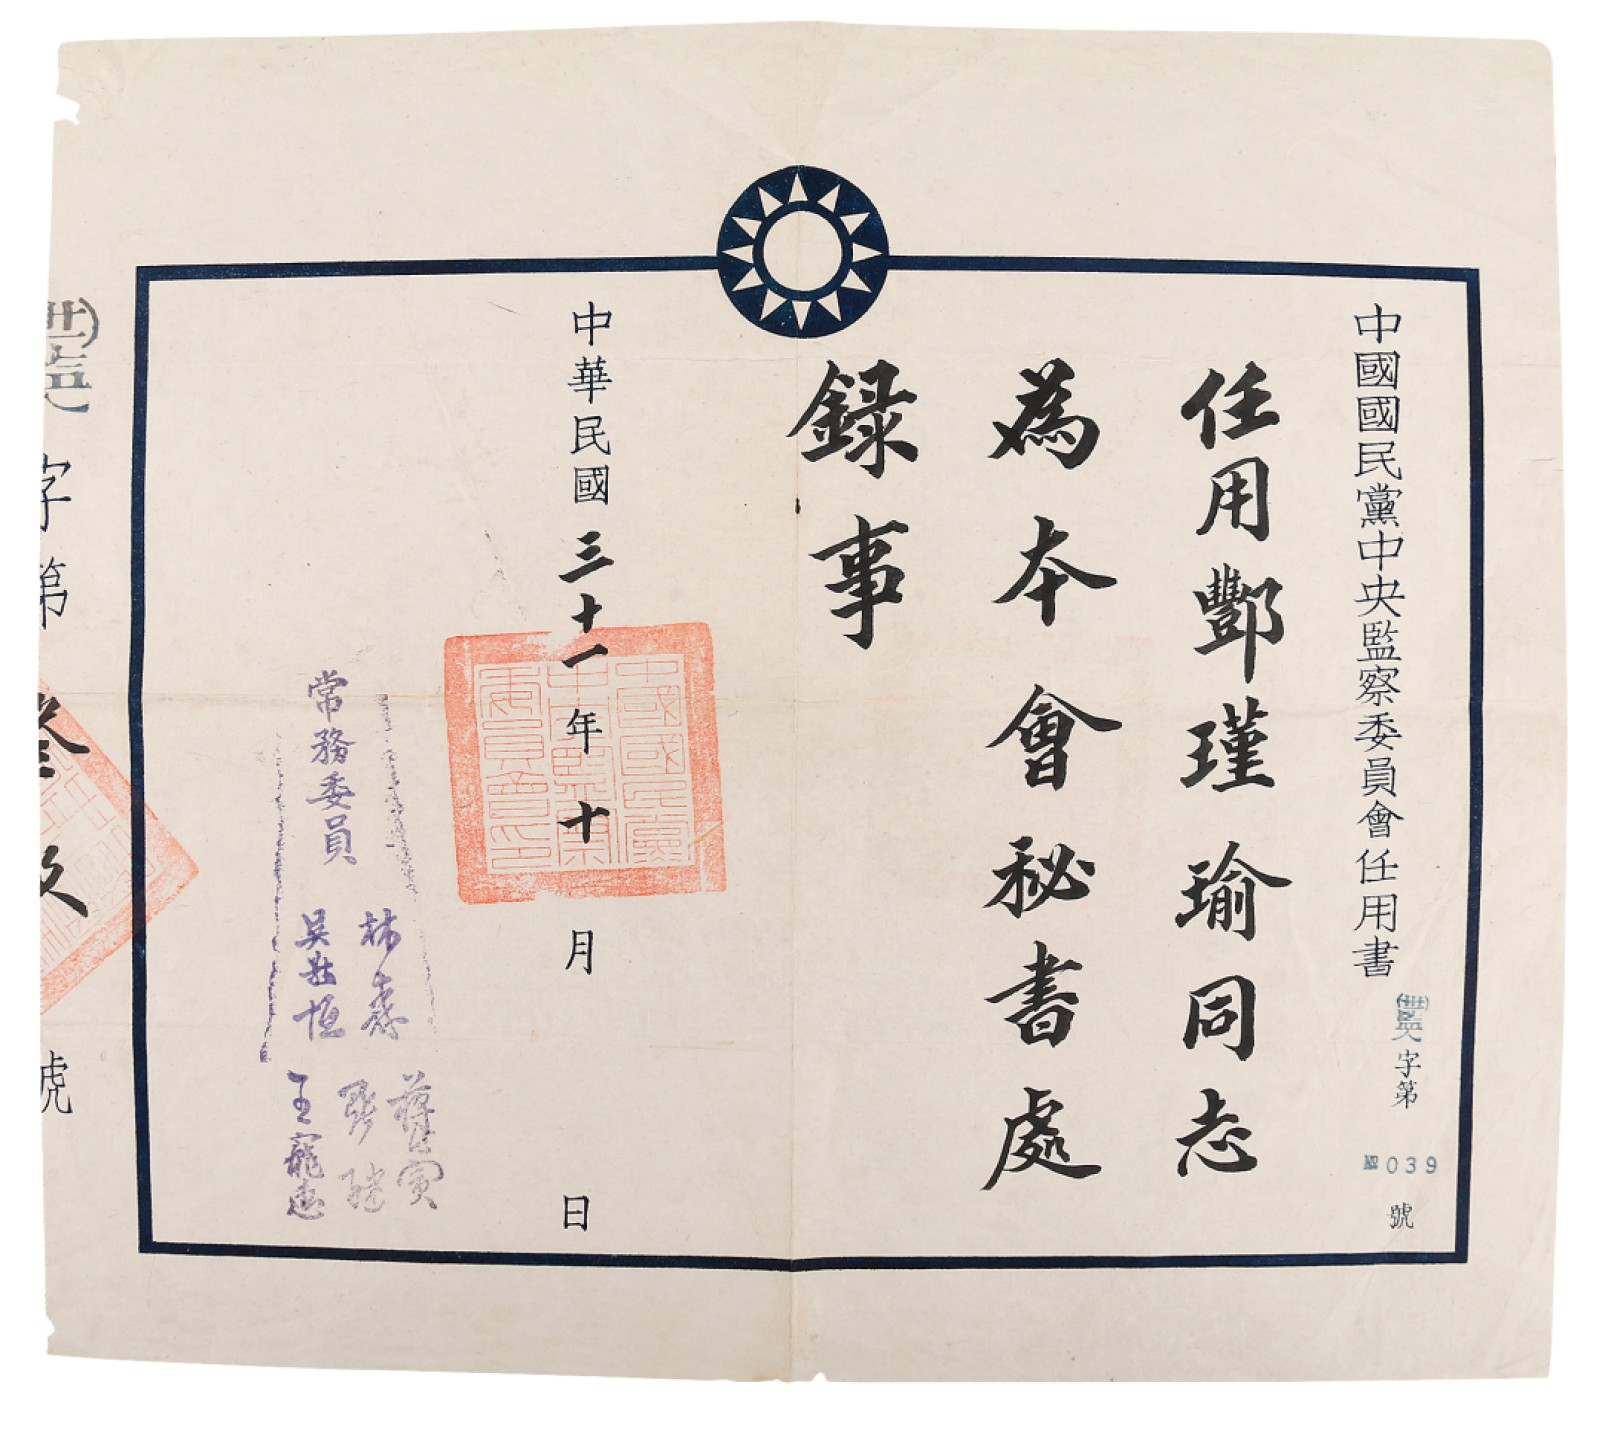 中國國民黨中央監察委員會任用書
(卅一)監人字第
№039
號
任用酆瑾瑜同志
為本會秘書處
録事
中華民國三十一年十月 日
中國國民黨
中央監察
委員會印
常務委員
林森
吳敬恒
張繼
王寵惠
(卅一)監人字第叁玖號